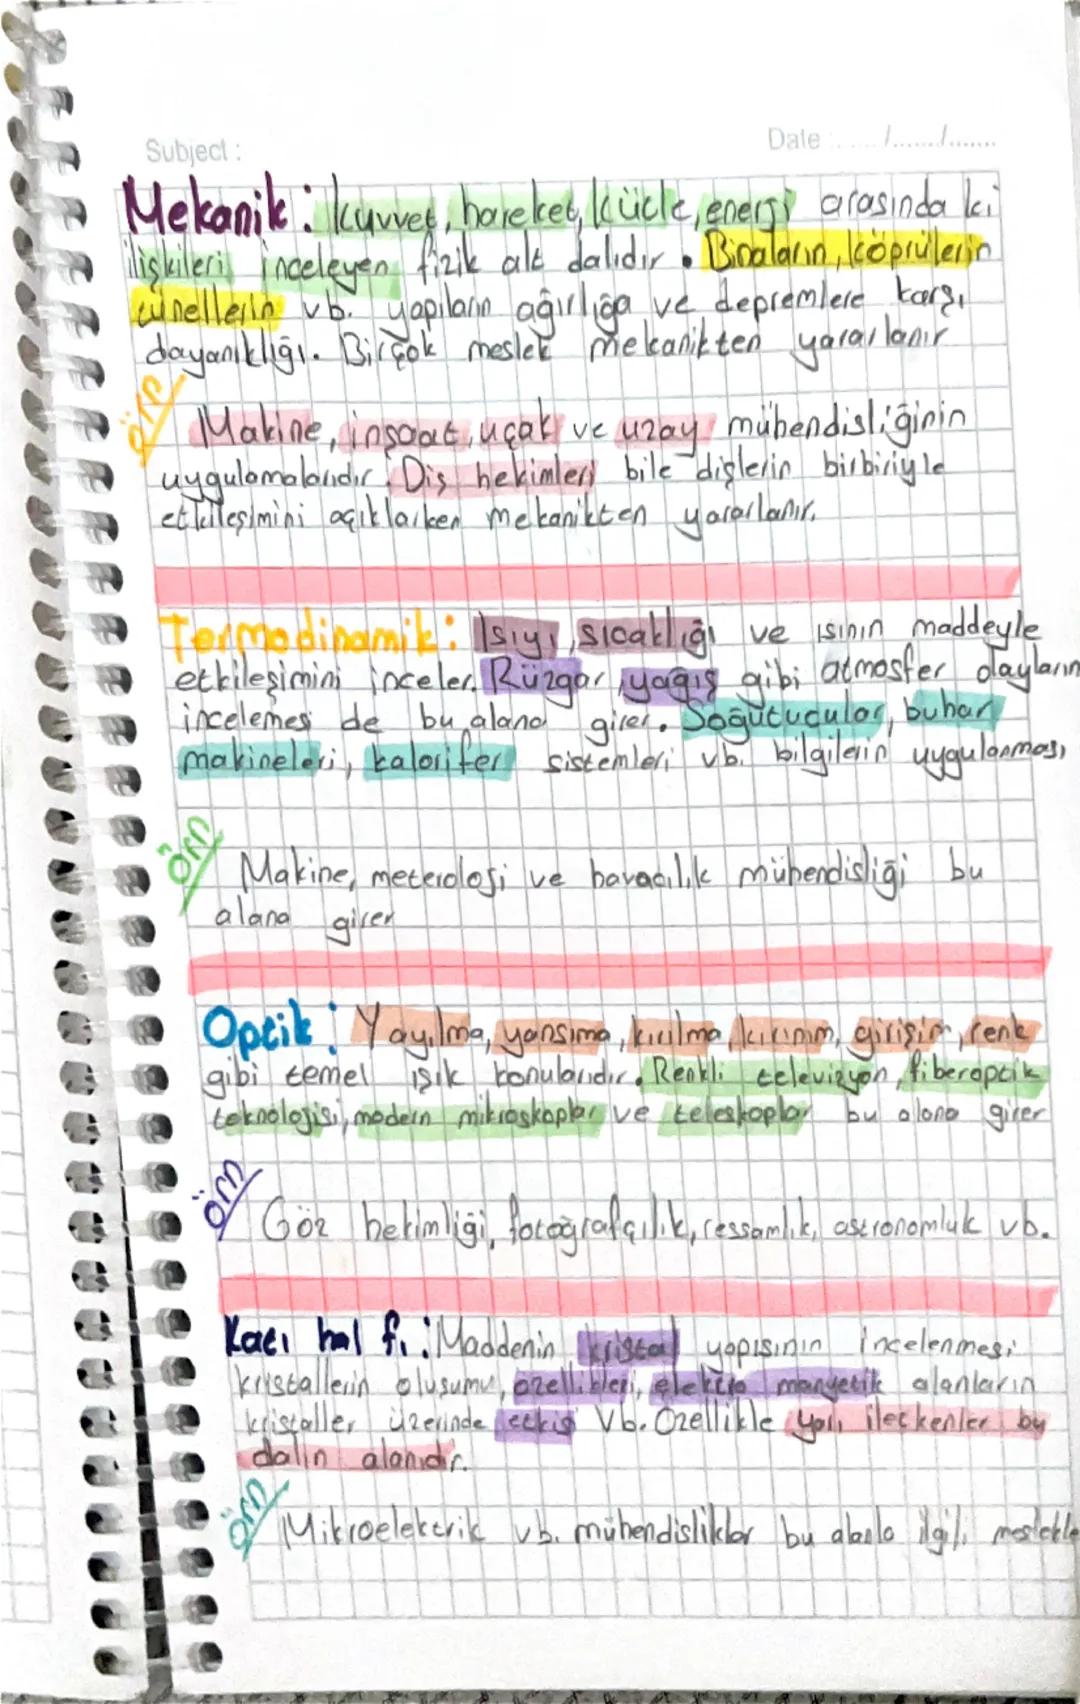 Subject :
Date : ....../......./.......
Mekanik : kuvvet, hareket, kütle, enerji arasında ki
ilişkileri inceleyen fizik alt dalıdır. Binaların, köprülerin
tünellerin vb. yapıların ağırlığa ve depremlere karşı
dayanıklığı. Birçok meslek mekanikten yararlanır
örn
Makine, inşaat, uçak ve uzay mühendisliğinin
uygulamalarıdır. Diş hekimleri bile dişlerin birbiriyle
etkileşimini açıklarken mekanikten yararlanır.
Termodinamik : Isıyı, sıcaklığı ve ısının maddeyle
etkileşimini inceler. Rüzgar, yağış gibi atmosfer olayların
incelemesi de bu alana girer. Soğutucular, buhar
makineleri, kalorifer sistemleri vb. bilgilerin uygulanması
örn
Makine, meteroloji ve havacılık mühendisliği bu
alana girer
Optik : Yayılma, yansıma, kırılma, kırınım, girişim, renk
gibi temel ışık konularıdır. Renkli televizyon, fiberoptik
teknolojisi, modern mikroskoplar ve teleskoplar bu alana girer
örn
Göz hekimliği, fotoğrafçılık, ressamlık, astronomluk vb.
Katı hal fi : Maddenin kristal yapısının incelenmesi
kristallerin oluşumu, özellikleri, elektro manyetik alanların
kristaller üzerinde etkisi vb. Özellikle yarı iletkenler bu
dalın alanıdır.
örn
Mikroelektrik vb. mühendislikler bu alanla ilgili meslekle